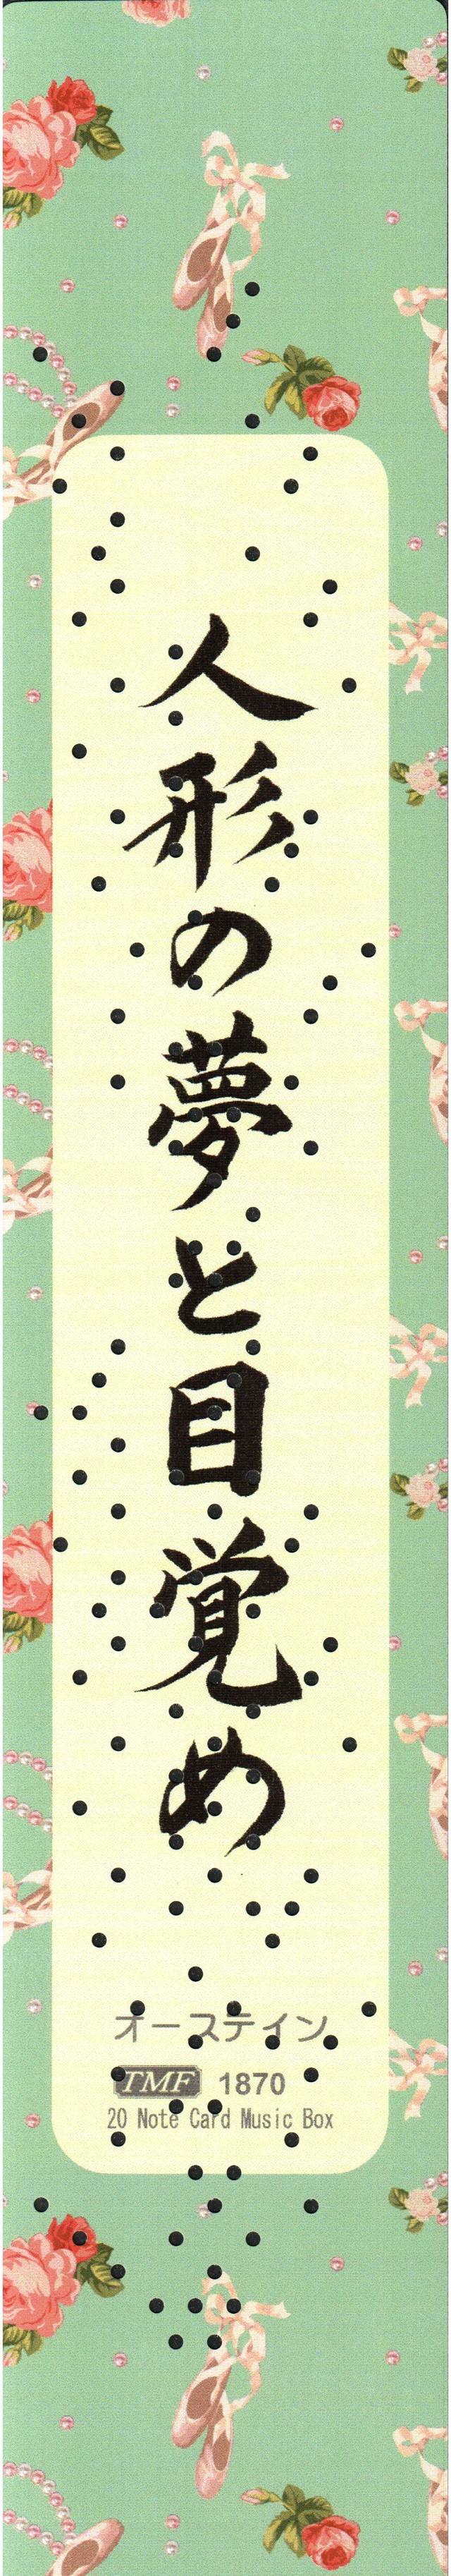 人形の夢と目覚め
オースティン
TMF 1870
20 Note Card Music Box